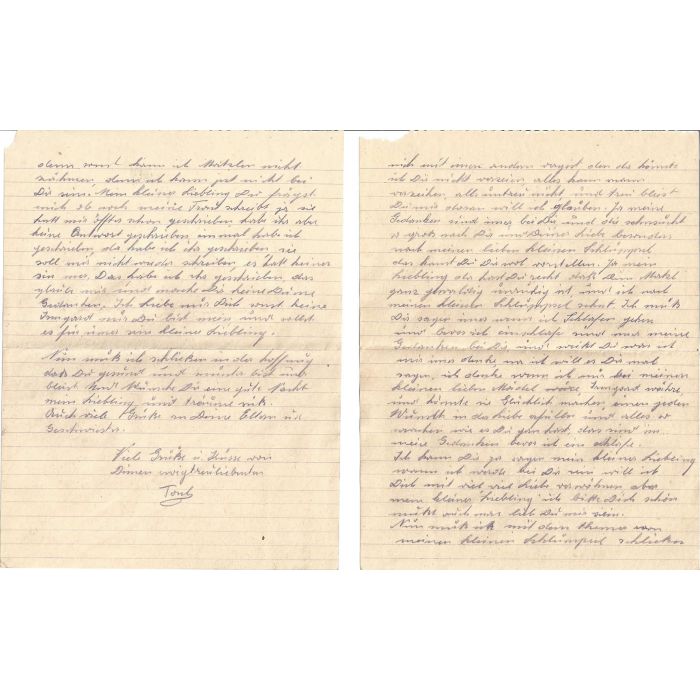 denn sonst kann ich
denn ich kann jetzt nicht bei
Dir sein. Mein kleiner Liebling Du frägst
mich ob noch meine Frau schreibt ja sie
hatt mir öfters schon geschrieben habe ihr aber
keine Antwort geschrieben einmal habe ich
geschrieben da habe ich ihr geschrieben sie
soll mir nicht wieder schreiben es hatt keinen
sin mer. Das habe ich ihr geschrieben, das
glaube mir und mache Dir keine
Gedanken. Ich liebe nur Dich sonst keine
Irmgard nur Du bist mein und sollst
es für immer sein kleiner Liebling.
Nun muß ich schließen in der Hoffnung
das Du gesund und munter bist und
bleibst. Und Wünsche Dir eine gute Nacht
mein Liebling und träume
Auch viele Grüße an Deine Eltern und
Geschwister.
Viele Grüße u. Küsse von
Deinen ewigtreuliebenden
Toni
mich mit einen andern den da könnte
ich Dir nicht verzeien, alles kann man
verzeihen, alls untreu nicht und treu bleibst
Du mir daran will ich glauben. Ja meine
Gedanken sind imer bei Dir und die sehnsucht
so groß nach Dir und Deiner liebe besonders
nach meinen lieben kleinen Schlümpel
das kanst Du Dir wol vorstellen. Ja mein
Liebling da hast Du recht daß Dein
ganz gewaldig unruhig ist und ich nach
meinen kleinen Schlümpel sehnt. Ich muß
Dir sagen imer wenn ich Schlafen gehen
und bevor ich einschlafe sind nur meine
Gedanken bei Dir und weißt Du was ich
mir imer denke na ich will es Dir mal
sagen, ich denke wenn ich nur bei meinen
kleinen lieben Mädel wäre, Irmgard währe
und könnte sie Glücklich machen einen jeden
Wunsch in der liebe erfüllen und alles so
machen wie es Dir gern hast, das sind im
meine Gedanken bevor ich ein schlafe.
Ich kann Dir ja sagen mein kleiner Liebling
wann ich wieder bei Dir sein will ich
Dich mit viel viel liebe verwöhnen aber
mein kleiner Liebling ich bitte Dich schön
mußt auch was lieb Du mir sein.
Nun muß ich mit dem thema von
meinen kleinen Schlümpel schließen